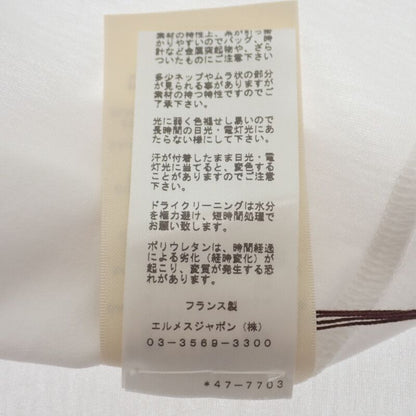 素材の特性上、糸が引っ掛
かりやすいのでバッグ、時
計など金属突起物や、ざら
ついたものにご注意下さい
多少ネップやムラ状の部分
が見られる事がありますが
素材の持つ特性ですのでご
了承下さい。
光に弱く色褪せし易いので
長時間の日光・電灯光にあ
たらない様にして下さい。
汗が付着したまま日光・電
灯光に当てると、変色する
ことがありますのでご注意
下さい。
ドライクリーニングは水分
を極力避け、短時間処理で
お願い致します。
ポリウレタンは、時間経過
による劣化（経時変化）が
起こり、変質が発生する恐
れがあります。
フランス製
エルメスジャポン（株）
03-3569-3300
*47-7703